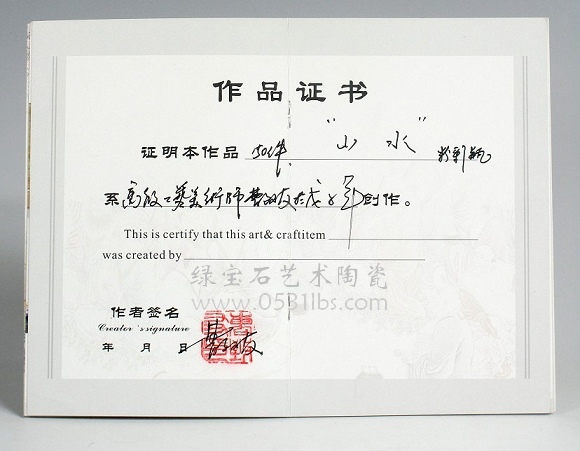 作品证书
证明本作品 150件 “山 水” 粉彩瓶
系高级工艺美术师 于戊子年创作。
This is certify that this art& craftitem
was created by
绿宝石艺术陶瓷
www.0531lbs.com
作者签名
Creator's signature
年 月 日